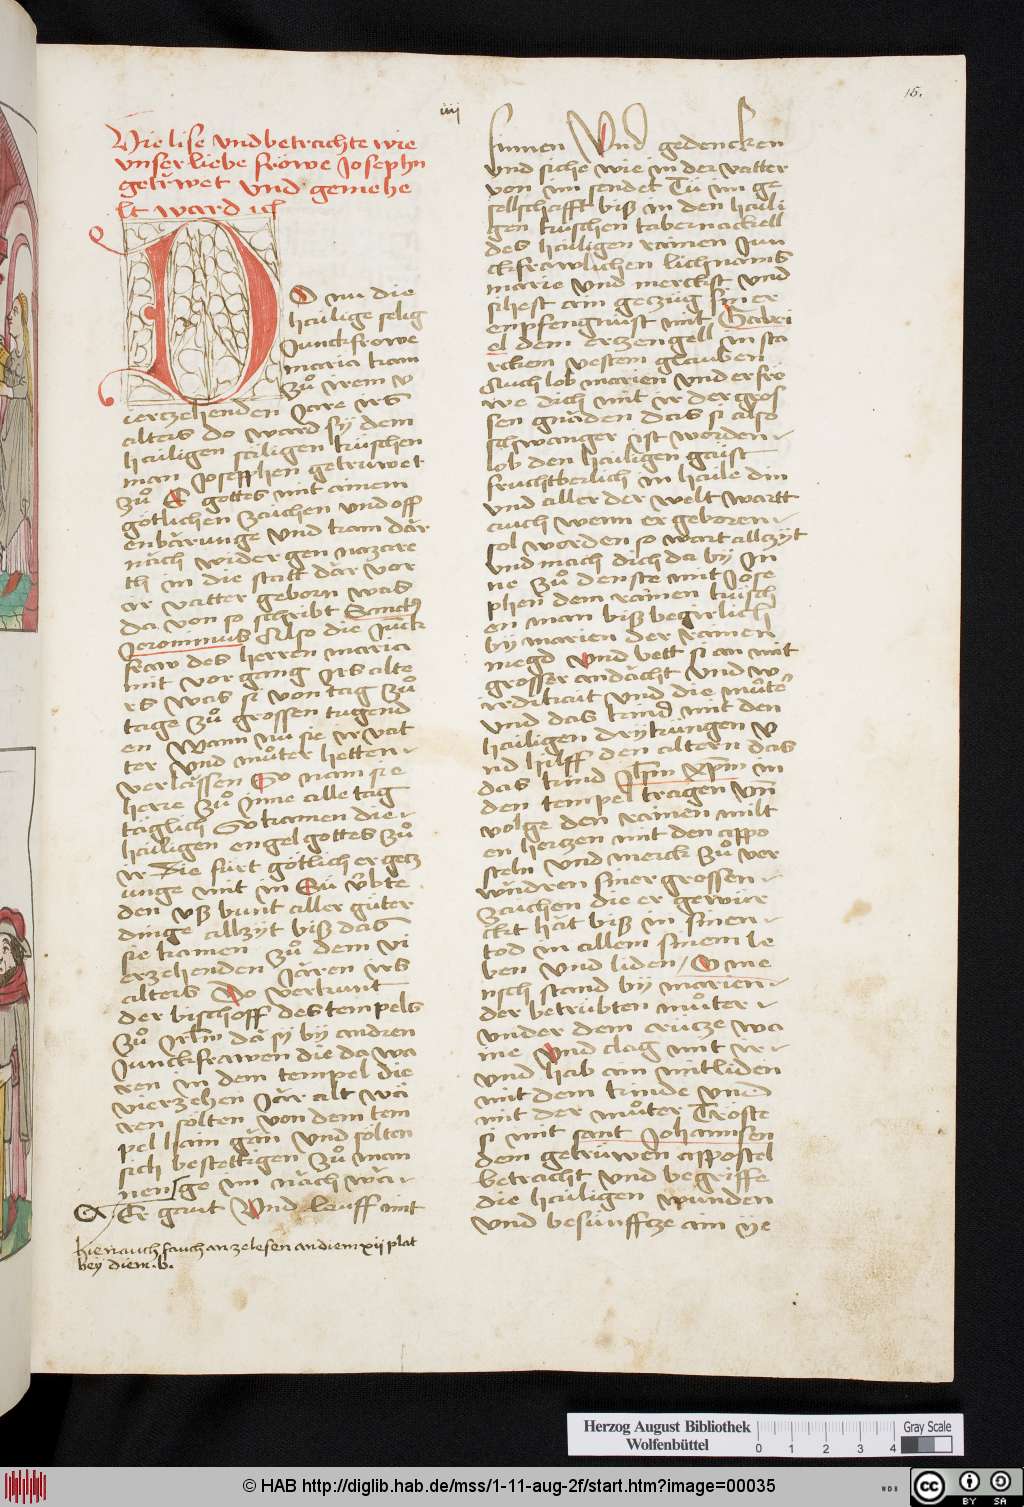 iiij
15.
Hie lise vnd betrachte wie
vnser liebe fröwe Josephn
getrwet vnd gemehe
lt ward ich
Do nu die
hailige selig
Junckfrowe
maria kam
zů irem v
ierzehenden Jare irs
alters do ward sÿ dem
hailigen sailigen küschen
man Josepphen getruwet
zů E gottes mit ainem
götlichen zaichen vnd off
enbärunge vnd kam där
näch wider gen nazare
th in die statt där vor
ir vatter geborn was
da von so schribt Sanctus
Jeronimus Also die Junck
fraw des herren maria
mit vorgang irs alte
rs was si von tag zů
tage zů grossen tugend
en Wann nu sie ir vat
ter vnd můter hetten
verlässen So nam sie
herre zů Jme alle tag
täglich So kamen die
hailigen engel gottes zů
ir Die fürt götlich ergetz
unge mit in Sü übte
den vß bunt aller güter
dinge allzÿt biß das
sie kamen zů dem vi
erzehenden Jären irs
alters Do verkunt
der bischoff des tempels
zů Jrlm dä sÿ bÿ andren
Junckfrawen die da wa
ren in dem tempel die
vierzehen Jär alt wä
ren sölten von dem tem
pel haim gän vnd sölten
sich bestettigen zů man
nen ge im näch wär
Er gaut Vnd louff mit
hienauch sauch anzelesen an diem xij plat
bey diem .b.
sinnen Vnd gedencken
vnd siche wie in der vatter
von im sendet Tü im ge
sellschafft biß in den haili
gen kuschen tabernackell
des hailigen rainen Jun
ckfrawlichen lichnams
marie vnd merckst vnd
sihest ain gezüg siner
enpfengnust mit Gabri
el dem erczengell in sta
rckem vestem glauben
Auch lob marien vnd erfrö
we dich mit ir der gros
sen gnäden das si also
schwanger ist worden
lob den hailigen gaist
fruchtberlich in haile din
vnd aller der welt wartt
auch wenn er geboren
sol worden so wart allzÿt
vnd mach dich da bÿ Jn
ne zů denste mit Jose
phen dem rainen küsch
en man biß begirlich
bÿ marien der rainen
megd vnd bett si an mit
grosser andächt vnd w
irdikait vnd die můter
vnd das kind mit den
hailigen drÿ künigen v
nd hilff den altern das
das kind Jhm xpm in
den tempel tragen vnd
volge den rainen milt
en hertzen mit den appo
steln vnd merck zů ver
wndren siner grossen
zaichen die er gewür
ckt hät biß in sinen
tod in allem sinem le
ben vnd liden / O me
nsch stand bÿ marien
der betrübten můter
vnder dem crucze wa
ine vnd clag mit ir
vnd hab ain mitliden
mit dem kinde vnd
mit der můter Tröste
si mit sant Johannsen
dem getrüwen appostel
betracht vnd begriffe
die hailigen wunden
vnd besünffcze ain ÿe
Herzog August Bibliothek
Wolfenbüttel
0 1 2 3 4
Gray Scale
© HAB http://diglib.hab.de/mss/1-11-aug-2f/start.htm?image=00035
WDB
cc BY SA